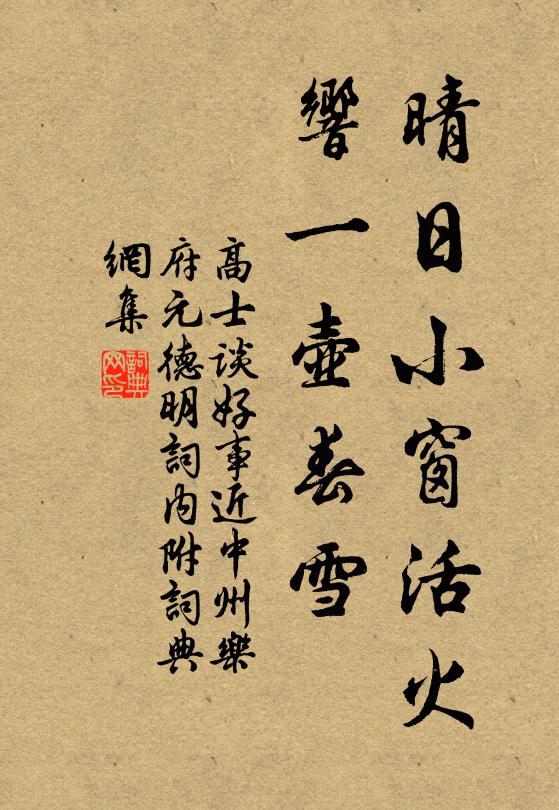 晴日小窗活火
響一壺春雪
高士談好事近中州樂
府元德明詞内附詞典
網集
詞典網印